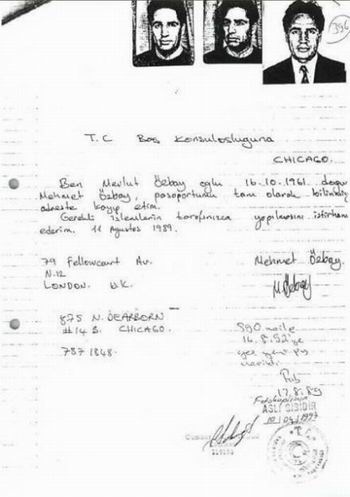 396
T.C Baş Konsolosluğuna
CHICAGO.
Ben Mevlut Özbay oğlu 16.10.1961 doğum
Mehmet Özbay, pasaportumu tam olarak
adreste kayıp ettim.
Gerekli işlemlerin tarafınızca yapılmasını istirham
ederim. 11 Agustos 1989.
79 Fellowcourt Av.
Mehmet Özbay.
N.12
LONDON. U.K.
M.Özbay
875 N. DEARBORN
#14 B. CHICAGO.
787 1848.
17.8.89
Fotokopinin
ASLI GİBİDİR
10/04/1997